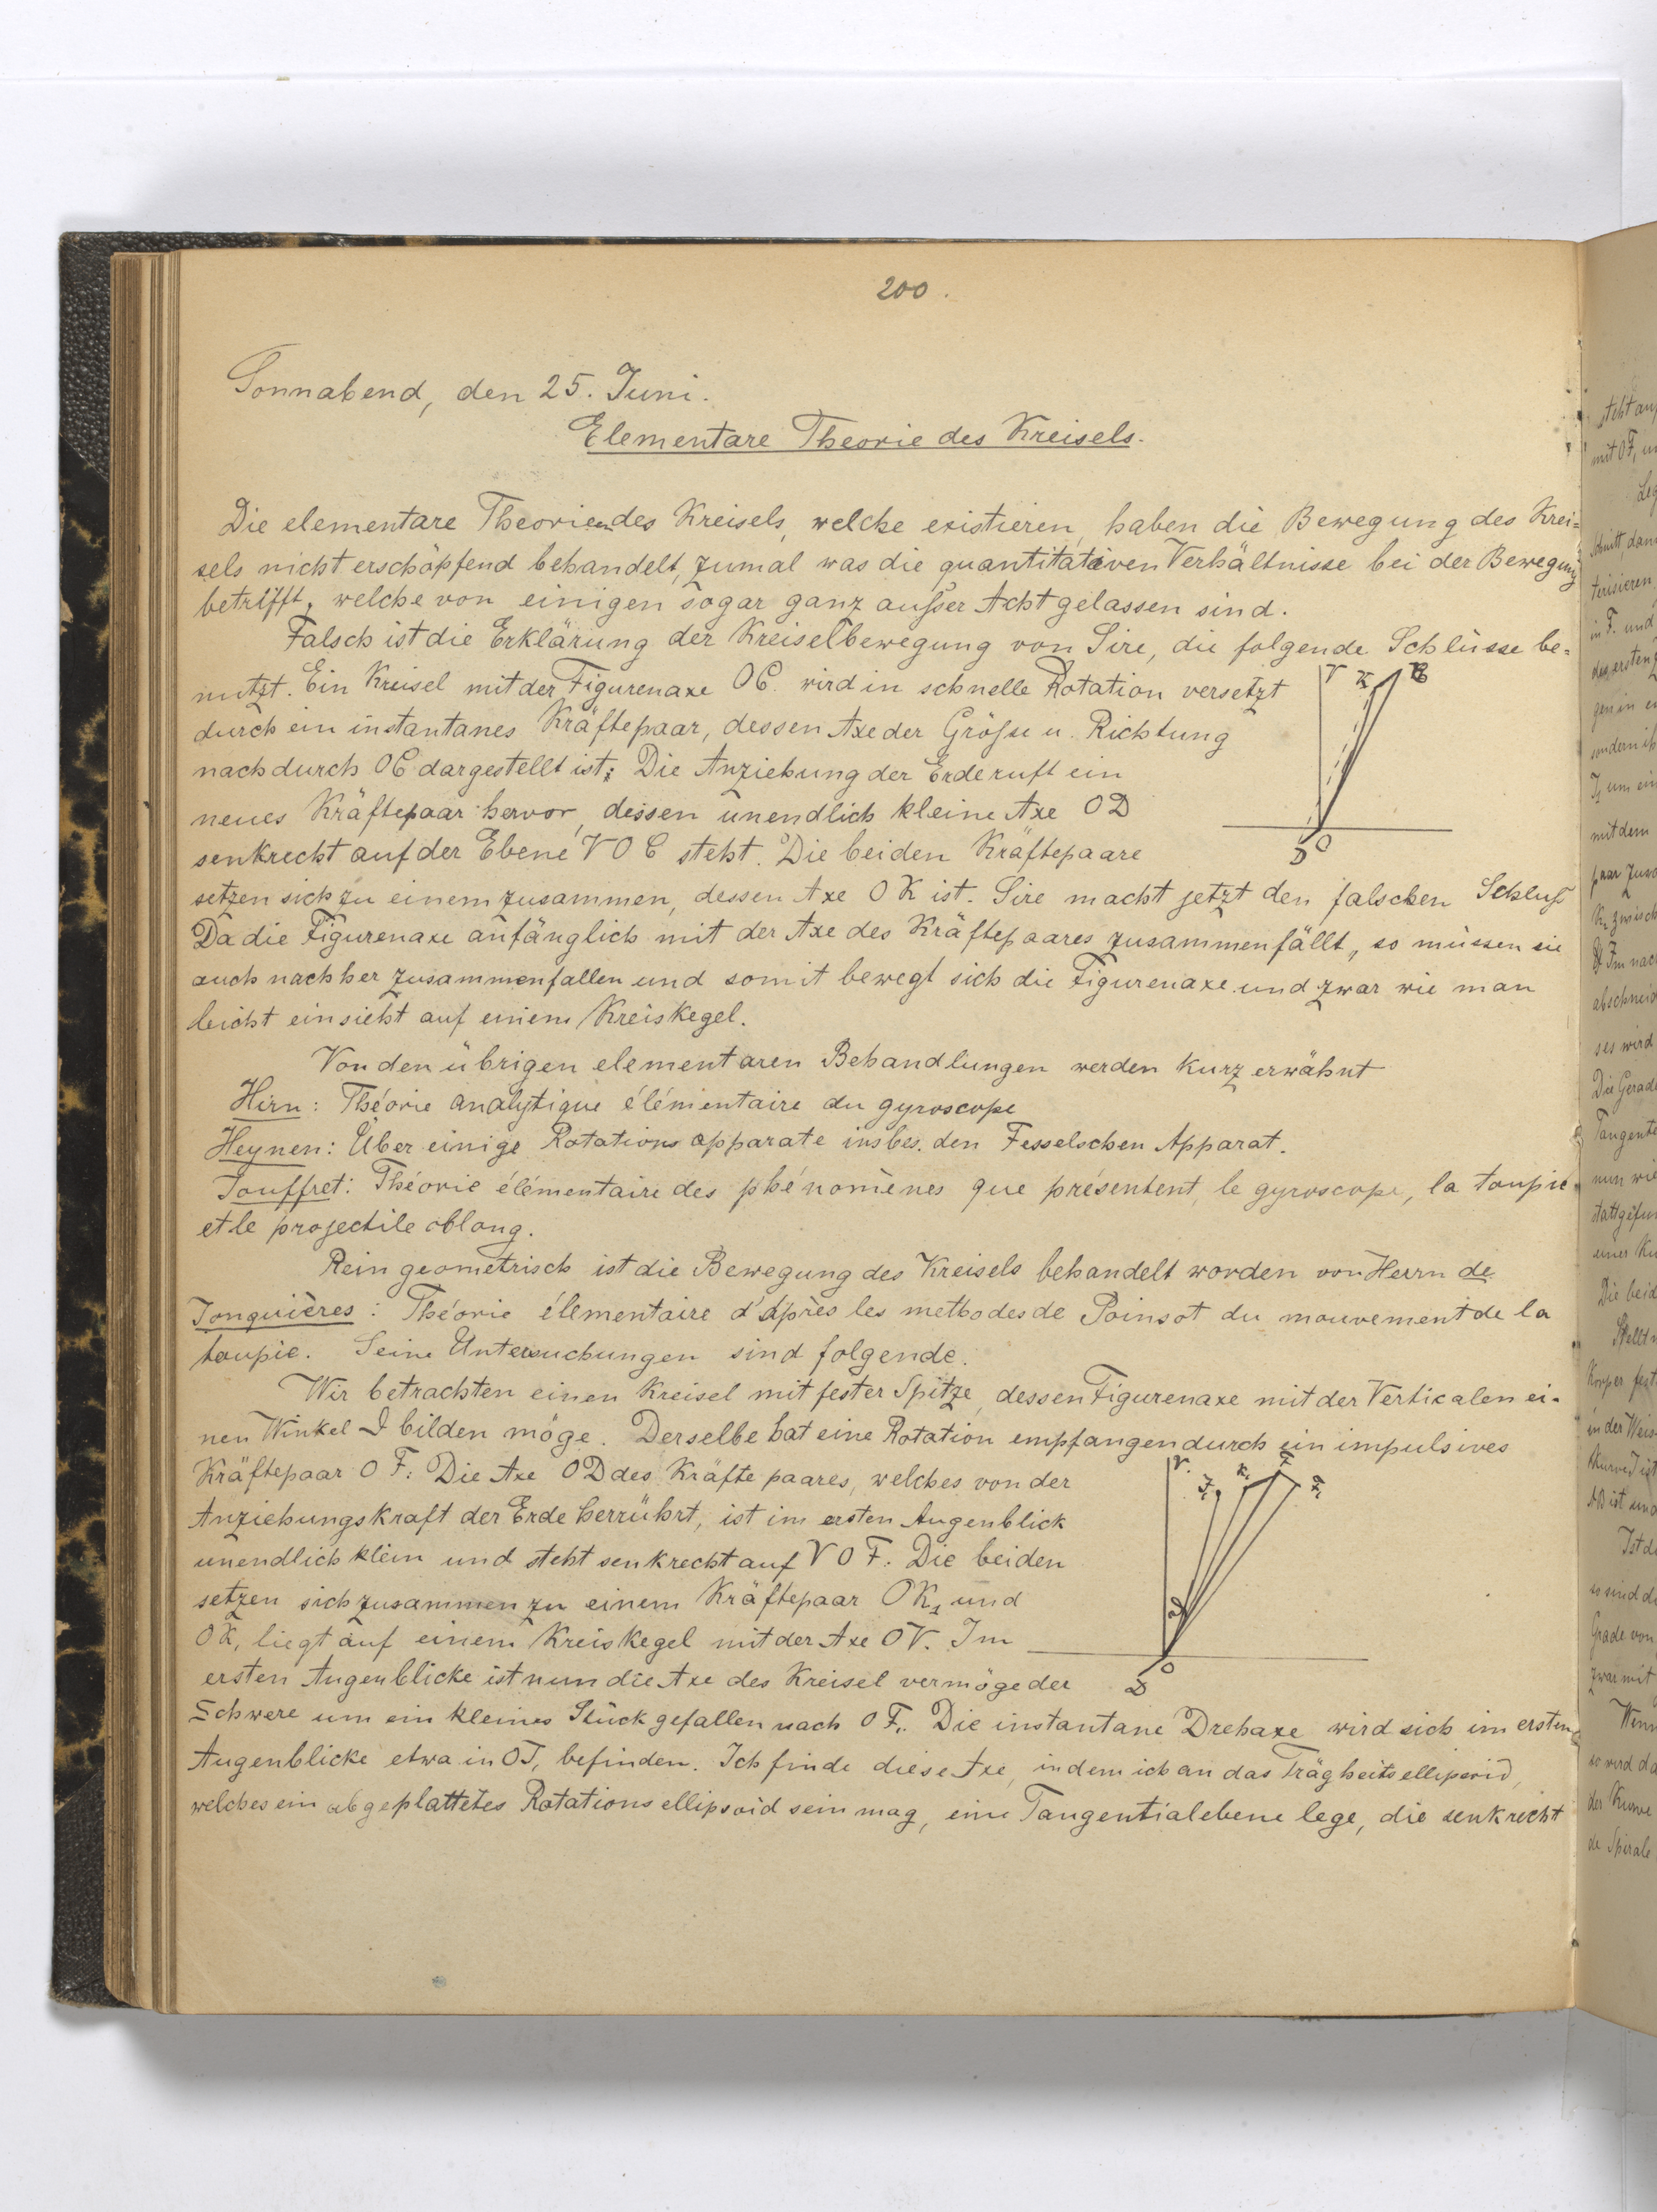 200.
Sonnabend, den 25. Juni.
Elementare Theorie des Kreisels.
Die elementare Theorien des Kreisels, welche existieren, haben die Bewegung des Krei=
sels nicht erschöpfend behandelt, zumal was die quantitativen Verhältnisse bei der Bewegung
betrifft, welche von einigen sogar ganz außer Acht gelassen sind.
Falsch ist die Erklärung der Kreiselbewegung von Sire, die folgende Schlüsse be=
nutzt. Ein Kreisel mit der Figurenaxe OC wird in schnelle Rotation versetzt
V K C
durch ein instantanes Kräftepaar, dessen Axe der Größe u. Richtung
nach durch OC dargestellt ist; Die Anziehung der Erde ruft ein
neues Kräftepaar hervor, dessen unendlich kleine Axe OD
senkrecht auf der Ebene VOC steht. Die beiden Kräftepaare
D O
setzen sich zu einem zusammen, dessen Axe OK ist. Sire macht jetzt den falschen Schluß
Da die Figurenaxe anfänglich mit der Axe des Kräftepaares zusammenfällt, so müssen sie
auch nachher zusammenfallen und somit bewegt sich die Figurenaxe und zwar wie man
leicht einsieht auf einem Kreiskegel.
Von den übrigen elementaren Behandlungen werden kurz erwähnt
Hirn: Théorie analytique élémentaire du gyroscope
Heynen: Über einige Rotations apparate insbes. den Fesselschen Apparat.
Jouffret: Théorie élémentaire des phénomènes que présentent le gyroscope, la toupie
et le projectile oblong.
Rein geometrisch ist die Bewegung des Kreisels behandelt worden von Herrn de
Jonquières: Théorie élementaire d'après les methodes de Poinsot du mouvement de la
toupie. Seine Untersuchungen sind folgende.
Wir betrachten einen Kreisel mit fester Spitze, dessen Figurenaxe mit der Verticalen ei-
nen Winkel ϑ bilden möge. Derselbe hat eine Rotation empfangen durch ein impulsives
Kräftepaar OF. Die Axe OD des Kräftepaares, welches von der
V. J₁ K₁ F F₁
Anziehungskraft der Erde herrührt, ist im ersten Augenblick
unendlich klein und steht senkrecht auf VOF. Die beiden
setzen sich zusammen zu einem Kräftepaar OK₁ und
ϑ
OK₁ liegt auf einem Kreiskegel mit der Axe OV. Im
ersten Augenblicke ist nun die Axe des Kreisel vermöge der
D O
Schwere um ein kleines Stück gefallen nach OF₁. Die instantane Drehaxe wird sich im ersten
Augenblicke etwa in OJ₁ befinden. Ich finde diese Axe, indem ich an das Trägheitsellipsoid,
welches ein abgeplattetes Rotationsellipsoid sein mag, eine Tangentialebene lege, die senkrecht